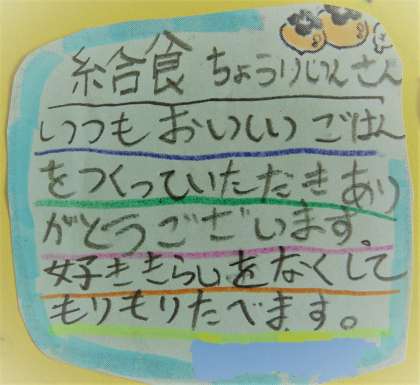 給食ちょうりいんさん
いつもおいしいごはん
をつくっていただきあり
がとうございます。
好ききらいをなくして
もりもりたべます。